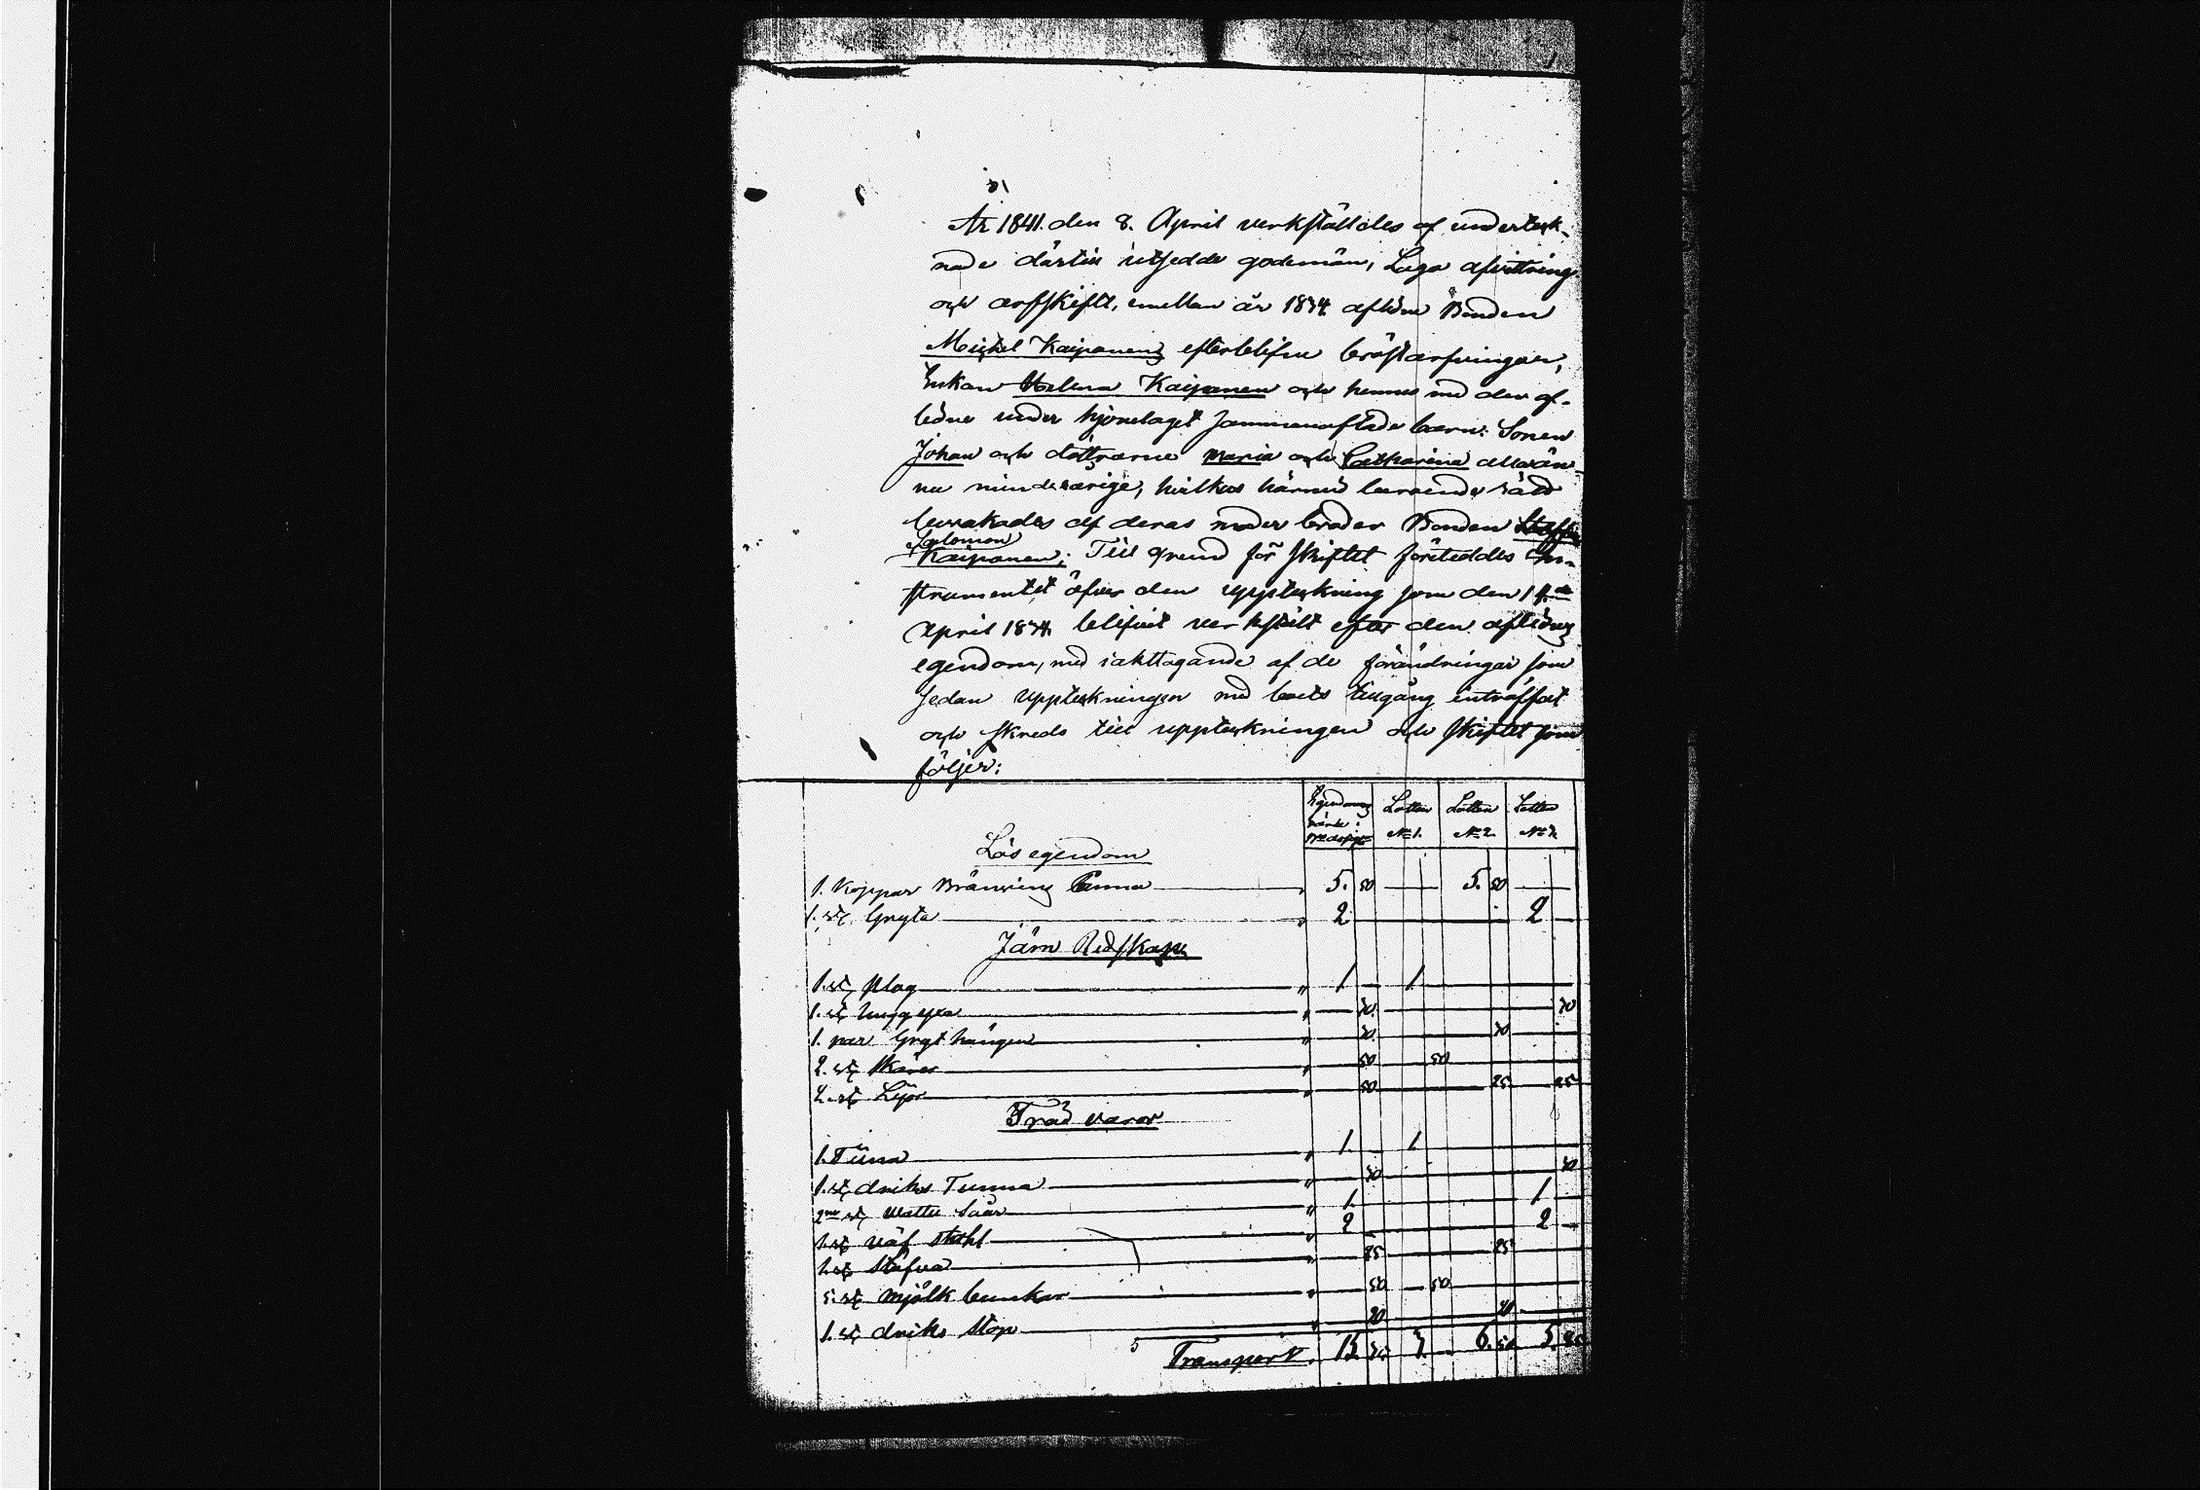 År 1841. den 8. April verkställdes af underteck-
nade därtill utsedde godemän, Laga afvittring
och arfskifte, emellan år 1834 aflidne Bonden
Michel Kaipanens efterblifne bröstarfvingar,
Enkan Helena Kaipanen och hennes med den af-
lidne under hjonelaget sammanaflade barn: Sonen
Johan och döttrarne Maria och Catharina allaän-
nu minderåriga, hvilkas härvid beroende rätt
bevakades af deras moder broder Bonden Staffan
Salomon
Kaipanen; Till grund för skiftet företeddes In-
strumentet öfver den uppteckning som den 14de
April 1834 blifvit verkstält efter den aflidnes
egendom, med iakttagande af de förändringar som
sedan uppteckningen med boets tillgång inträffat
och skreds till uppteckningen och skiftet som
följer:
Egendomens värde i Lotten Lotten Lotten
No 1. No 2. No 3.
Lös egendom
1. Koppar Bränvins Panna " 5. 50 5. 50
1. st Gryta " 2 2
Järn Redskap
1. st Plog " 1 1.
1. st huggyxa " 30. 30
1. par Gryt hängen " 30. 30
2. st Skäror " 50 50
2. st Lijor " 50 25 25
Träd varor
1. Tiina " 1. 1.
1. st dricks Tunna " 30 30
2ne st Watten Såar " 1. 1
1. st väf stohl " 2 2
1. st Stäfva " 25 25
5. st mjölk bunkar " 50 50
1. st dricks Stop " 20 20
Transport. 15. 35 3. 6. 50 5. 85